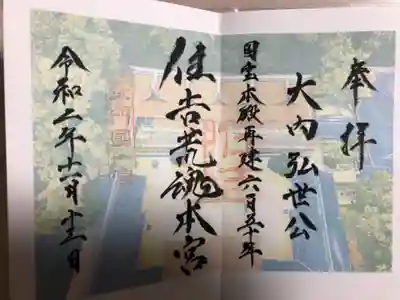 奉拝
大内弘世公
国宝本殿再建六百五十年
住吉荒魂本宮
令和二年十一月十三日